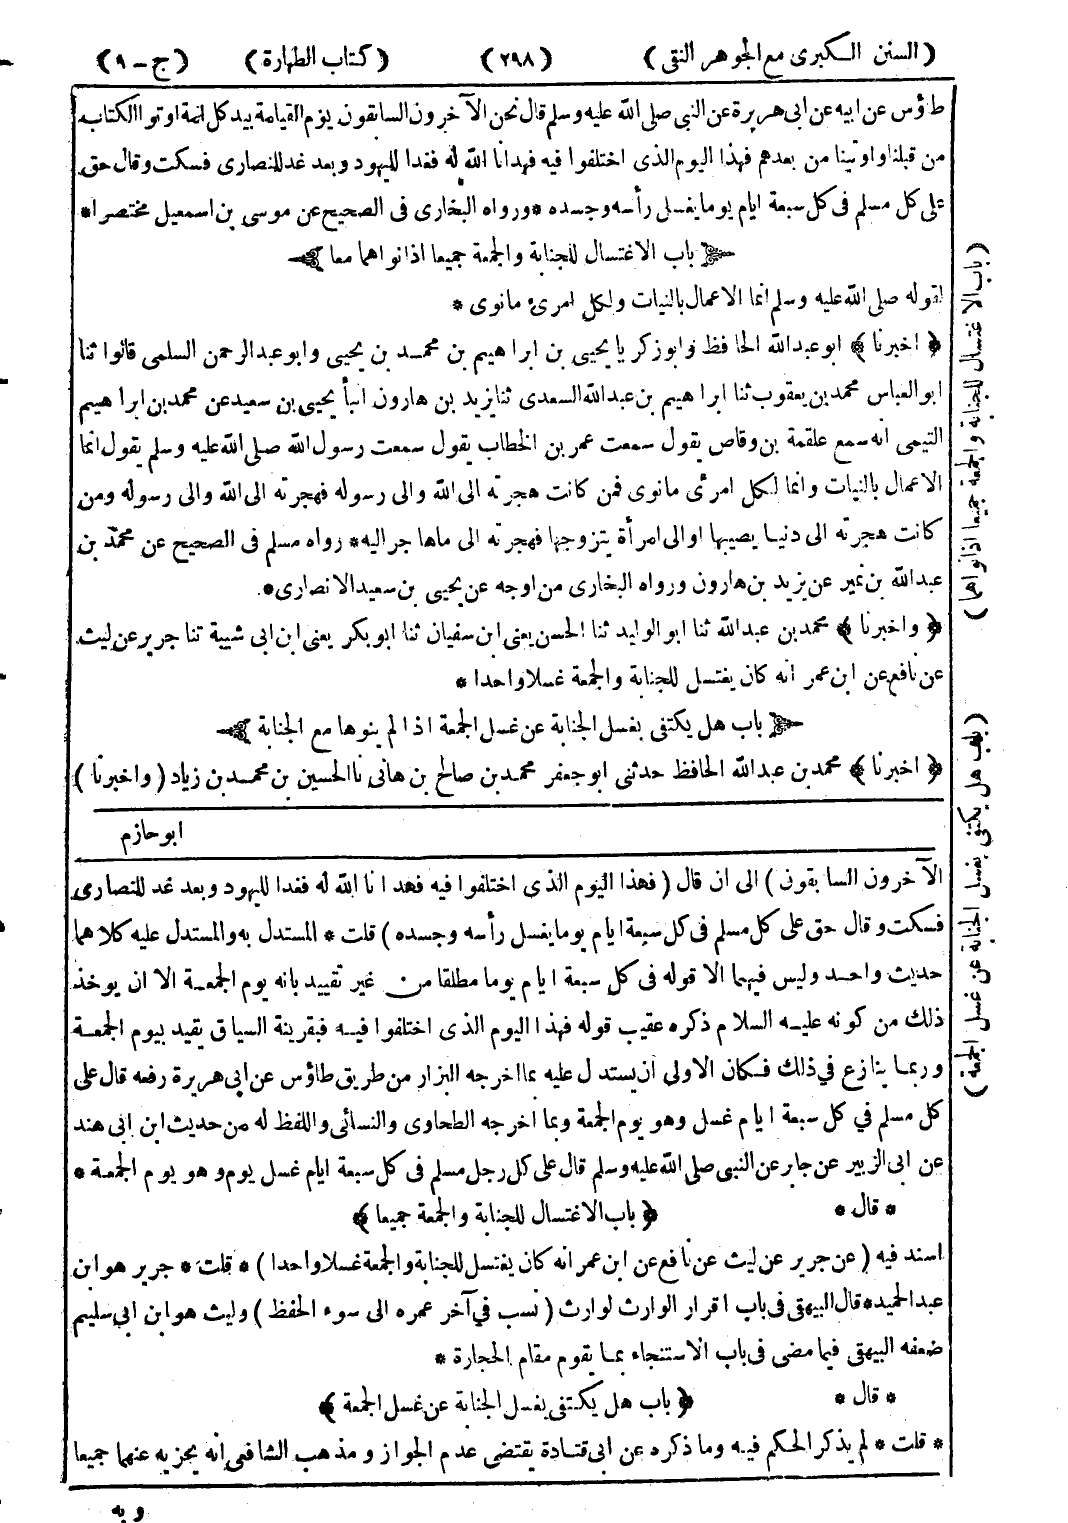 (السنن الكبرى مع الجوهر النقى) (٢٩٨) (كتاب الطهارة) (ج - ١)
طاؤس عن ابيه عن ابى هريرة عن النبى صلى الله عليه وسلم قال نحن الآخرون السابقون يوم القيامة بيد كل امة اوتوا الكتاب
من قبلنا واوتينا من بعدهم فهذا اليوم الذى اختلفوا فيه فهدانا الله له فغدا لليهود وبعد غد للنصارى فسكت وقال حق
على كل مسلم فى كل سبعة ايام يوما يغسل رأسه وجسده * ورواه البخارى فى الصحيح عن موسى بن اسمعيل مختصرا *
باب الاغتسال للجنابة والجمعة جميعا اذا نواهما معا
لقوله صلى الله عليه وسلم انما الاعمال بالنيات ولكل امرئ مانوى *
﴿ اخبرنا ﴾ ابو عبدالله الحافظ وابو زكريا يحيى بن ابراهيم بن محمد بن يحيى وابو عبدالرحمن السلمى قالوا ثنا
ابو العباس محمد بن يعقوب ثنا ابراهيم بن عبدالله السعدى ثنا يزيد بن هارون انبأ يحيى بن سعيد عن محمد بن ابراهيم
التيمى انه سمع علقمة بن وقاص يقول سمعت عمر بن الخطاب يقول سمعت رسول الله صلى الله عليه وسلم يقول انما
الاعمال بالنيات وانما لكل امرئ مانوى فمن كانت هجرته الى الله والى رسوله فهجرته الى الله والى رسوله ومن
كانت هجرته الى دنيا يصيبها او الى امرأة يتزوجها فهجرته الى ماهاجر اليه * رواه مسلم فى الصحيح عن محمد بن
عبدالله بن نمير عن يزيد بن هارون ورواه البخارى من اوجه عن يحيى بن سعيد الانصارى *
﴿ واخبرنا ﴾ محمد بن عبدالله ثنا ابو الوليد ثنا الحسن يعنى ابن سفيان ثنا ابو بكر يعنى ابن ابى شيبة ثنا جرير عن ليث
عن نافع عن ابن عمر انه كان يغتسل للجنابة والجمعة غسلا واحدا *
باب هل يكتفى بغسل الجنابة عن غسل الجمعة اذا لم ينوها مع الجنابة
﴿ اخبرنا ﴾ محمد بن عبدالله الحافظ حدثنى ابو جعفر محمد بن صالح بن هانى نا الحسين بن محمد بن زياد (واخبرنا)
ابو حازم
الآخرون السابقون) الى ان قال (فهذا اليوم الذى اختلفوا فيه فهدانا الله له فغدا لليهود وبعد غد للنصارى
فسكت وقال حق على كل مسلم فى كل سبعة ايام يوما يغسل رأسه وجسده) قلت * المستدل به والمستدل عليه كلاهما
حديث واحد وليس فيهما الا قوله فى كل سبعة ايام يوما مطلقا من غير تقييد بانه يوم الجمعة الا ان يوخذ
ذلك من كونه عليه السلام ذكره عقيب قوله فهذا اليوم الذى اختلفوا فيه فبقرينة السياق يقيد بيوم الجمعة
وربما ينازع في ذلك فكان الاولى ان يستدل عليه بما اخرجه البزار من طريق طاؤس عن ابى هريرة رفعه قال على
كل مسلم في كل سبعة ايام غسل وهو يوم الجمعة وبما اخرجه الطحاوى والنسائى واللفظ له من حديث ابن ابى هند
عن ابى الزبير عن جابر عن النبى صلى الله عليه وسلم قال على كل رجل مسلم فى كل سبعة ايام غسل يوم وهو يوم الجمعة *
* قال * ﴿ باب الاغتسال للجنابة والجمعة جميعا ﴾
اسند فيه (عن جرير عن ليث عن نافع عن ابن عمر انه كان يغتسل للجنابة والجمعة غسلا واحدا) * قلت * جرير هو ابن
عبد الحميد * قال البيهقى فى باب اقرار الوارث لوارث (نسب في آخر عمره الى سوء الحفظ) وليث هو ابن ابى سليم
ضعفه البيهقى فيما مضى فى باب الاستنجاء بما يقوم مقام الحجارة *
* قال * ﴿ باب هل يكتفى بغسل الجنابة عن غسل الجمعة ﴾
* قلت * لم يذكر الحكم فيه وما ذكره عن ابى قتادة يقتضى عدم الجواز ومذهب الشافعى انه يجزيه عنهما جميعا
وبه
(باب الاغتسال للجنابة والجمعة جميعا اذا نواهما)
(باب هل يكتفى بغسل الجنابة عن غسل الجمعة)